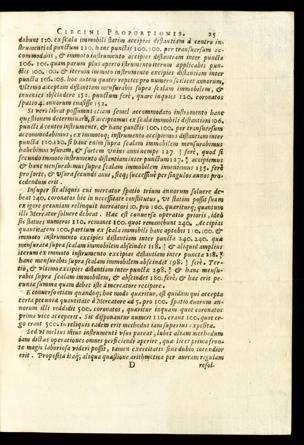 CIRCINI PROPORTIONIS. 25
dabunt 130. ex scala immobili statim accipies distantiam à centro in-
strumenti ad punctum 130. hanc punctis 100. 100. per transuersum ac-
commodabis, & immoto instrumento accipies distantiam inter puncta
106. 106. quam parum plus aperto instrumento iterum applicabis pun-
ctis 100. 100. & iterum immoto instrumento excipies distantiam inter
puncta 106. 106. hoc autem quater repetes pro numero scilicet annorum,
vltimo acceptam distantiam mensurabis supra scalam immobilem, &
inuenies abscindere 152. punctum ferè, quare inquies 120. coronatos
spatio 4. annorum euasisse 152.
Si verò libeat possumus etiam semel accommodato instrumento hanc
quæstionem determinare, si accipiamus ex scala immobili distantiam 106.
puncti à centro instrumenti, & hanc punctis 100. 100. per transuersum
accommodabimus, ex immotoque instrumento accipiemus distantiam inter
puncta 120. 120. si hanc enim supra scalam immobilem mensurabimus
habebimus vsuram, & sortem vnius anni nempe 127. ferè, quod si
secundo immoto instrumento distantiam inter puncta 127. accipiemus
& hanc mensurabimus supra scalam immobilem inueniemus 135. ferè
pro sorte, & vsura secundi anni, sicque successiuè per singulos annos pro-
cedendum erit.
Insuper si aliquis cui mercator spatio trium annorum soluere de-
beat 240. coronatos hic in necessitate constitutus, vt statim possit suam
ex igere pecuniam relinquit mercatori 10. pro 100. quæritur quantum
illi Mercator soluere debeat. Hæc est conuersa operatio prioris, ideò
si statues numerum 110. remanere 100. quot remanebunt 240. Accipies
quantitatem 100. partium ex scala immobili hanc aptabis 110. 110. &
immoto instrumento excipies distantiam inter puncta 240. 240. quæ
mensurata supra scalam immobilem abscindet 218. & aliquid amplius
iterum ex immoto instrumento excipies distantiam inter puncta 218.
hanc mensurabis supra scalam immobilem abscindet 198. ferè. Ter-
tiò, & vltimo excipies distantiam inter puncta 198. & hanc mensu-
rabis supra scalam immobilem, & abscindet 180. ferè, & hæc erit pe-
cuniæ summa quam debet iste à mercatore recipere.
E conuerso etiam quandoque hoc modo quæritur, est quidam qui accepta
certa pecuniæ quantitate à Mercatore ad 5. pro 100. spatio duorum an-
norum illi reddidit 500. coronatos, quæritur inquam quot coronatos
prima vice acceperit. Sic disponantur numeri 110. erant 100. quot er-
go erant 500. in reliquis eadem erit methodus iam superius exposita.
Sed vt melius istius instrumenti vsus pateat, iubet aliam methodum
iam dictas operationes omnes perficiendi aperire, quæ licet prima fron-
te magis laboriosa videri possit, tamen exercitatis sine dubio iucundior
erit. Proposita itaque aliqua quæstione arithmetica per auream regulam
D resol-